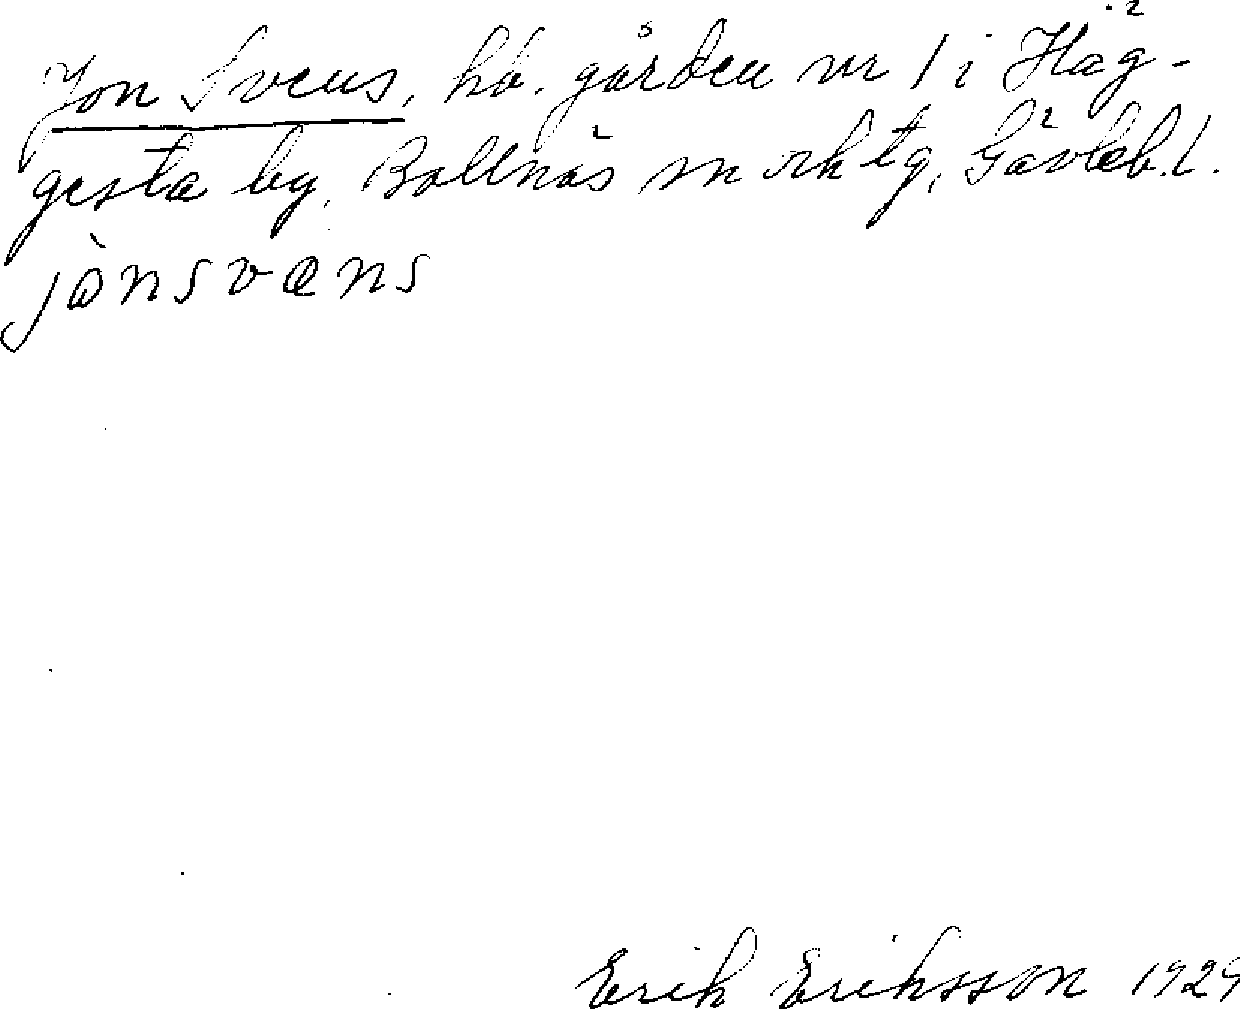 Jon Svens, hb. gården nr 1 i Häg-
gesta by, Bollnäs sn och tg, Gävleb. l.
jànsvæns
Erik Eriksson 1929